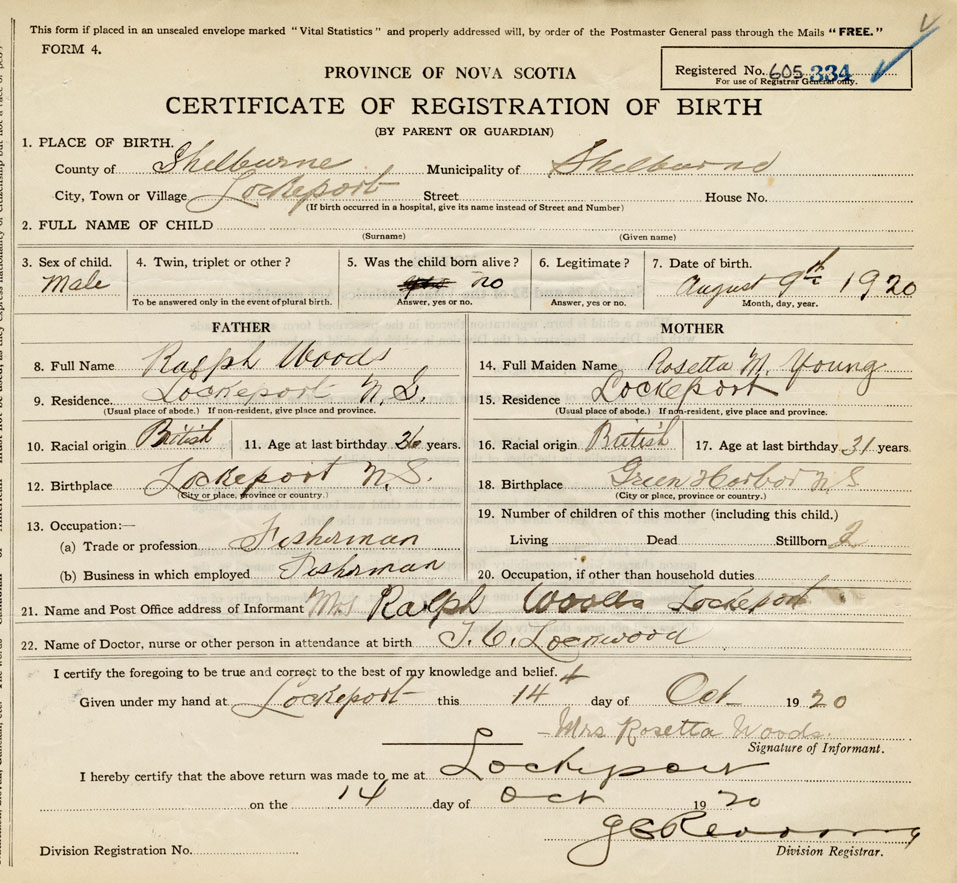 This form if placed in an unsealed envelope marked "Vital Statistics" and properly addressed will, by order of the Postmaster General pass through the Mails "FREE."
FORM 4.
Registered No. 605 334
For use of Registrar General only.
PROVINCE OF NOVA SCOTIA
CERTIFICATE OF REGISTRATION OF BIRTH
(BY PARENT OR GUARDIAN)
1. PLACE OF BIRTH.
County of Shelburne Municipality of Shelburne
City, Town or Village Lockeport Street House No.
(If birth occurred in a hospital, give its name instead of Street and Number)
2. FULL NAME OF CHILD
(Surname) (Given name)
3. Sex of child. 4. Twin, triplet or other? 5. Was the child born alive? 6. Legitimate? 7. Date of birth.
Male no August 9th 1920
To be answered only in the event of plural birth. Answer, yes or no. Answer, yes or no. Month, day, year.
FATHER MOTHER
8. Full Name Ralph Woods 14. Full Maiden Name Rosetta M. Young
9. Residence. Lockeport N.S. 15. Residence Lockeport
(Usual place of abode.) If non-resident, give place and province. (Usual place of abode.) If non-resident, give place and province.
10. Racial origin British 11. Age at last birthday years. 16. Racial origin British 17. Age at last birthday 31 years.
12. Birthplace Lockeport N.S. 18. Birthplace Green Harbor N S
(City or place, province or country.) (City or place, province or country.)
13. Occupation:— 19. Number of children of this mother (including this child.)
(a) Trade or profession Fisherman Living Dead Stillborn 2
(b) Business in which employed Fisherman 20. Occupation, if other than household duties
21. Name and Post Office address of Informant Mrs Ralph Woods Lockeport
22. Name of Doctor, nurse or other person in attendance at birth Lockwood
I certify the foregoing to be true and correct to the best of my knowledge and belief.
Given under my hand at Lockeport this 14 day of Oct 1920
Mrs Rosetta Woods.
Signature of Informant.
I hereby certify that the above return was made to me at Lockeport
on the 14 day of Oct 1920
Division Registration No. Division Registrar.